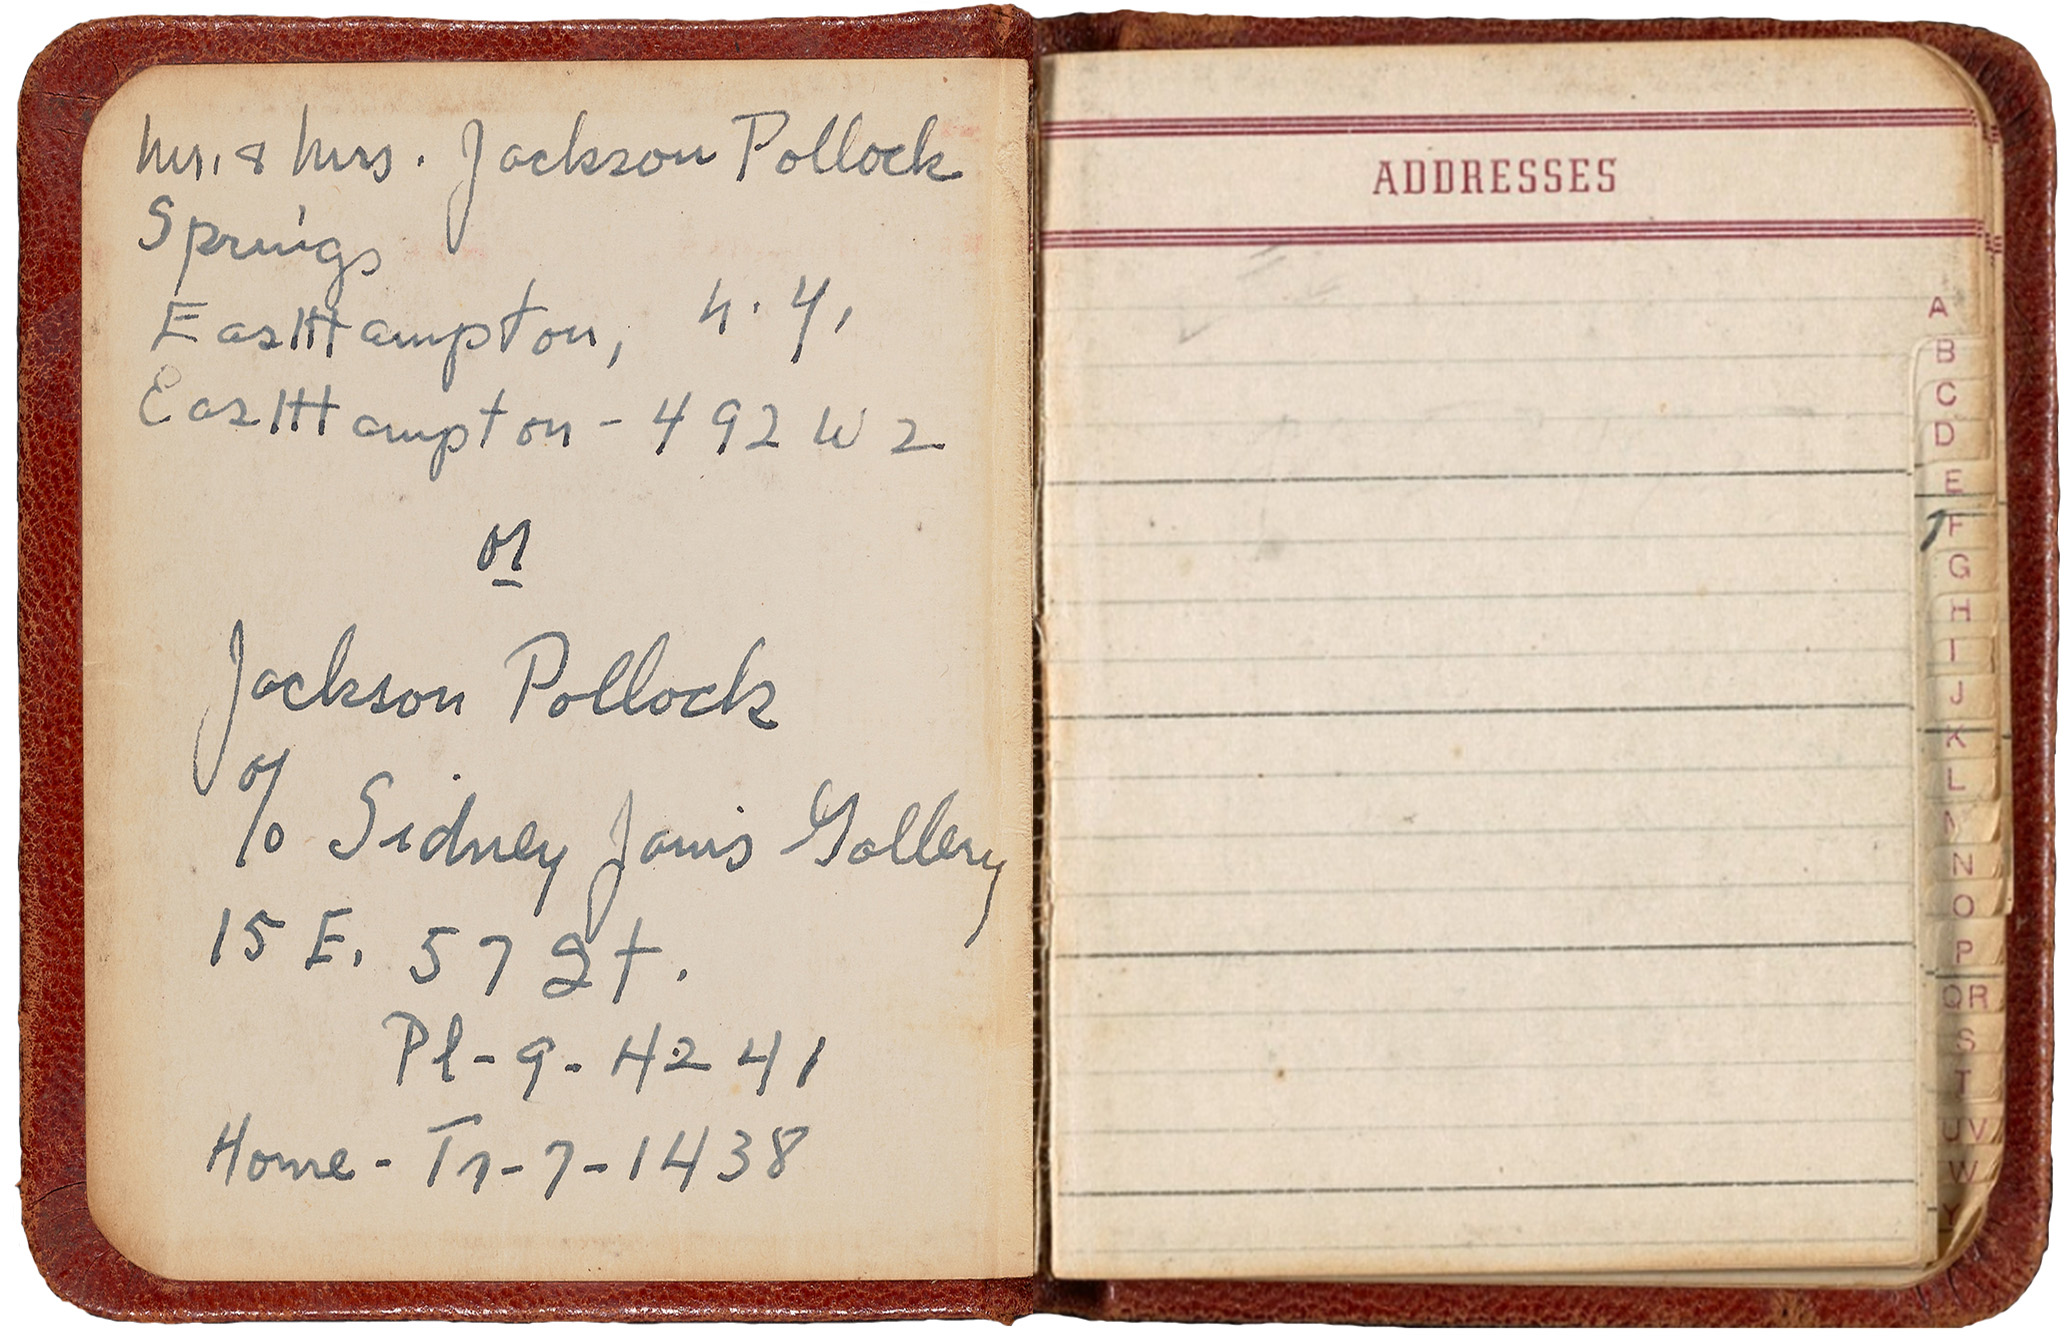 Mr. & Mrs. Jackson Pollock
Springs
EastHampton, N.Y.
EastHampton - 492 W 2
or
Jackson Pollock
c/o Sidney Janis Gallery
15 E. 57 St.
Pl-9-4241
Home - Tr-7-1438
ADDRESSES
A
B
C
D
E
F
G
H
I
J
K
L
N
O
P
QR
S
T
UV
W
Y